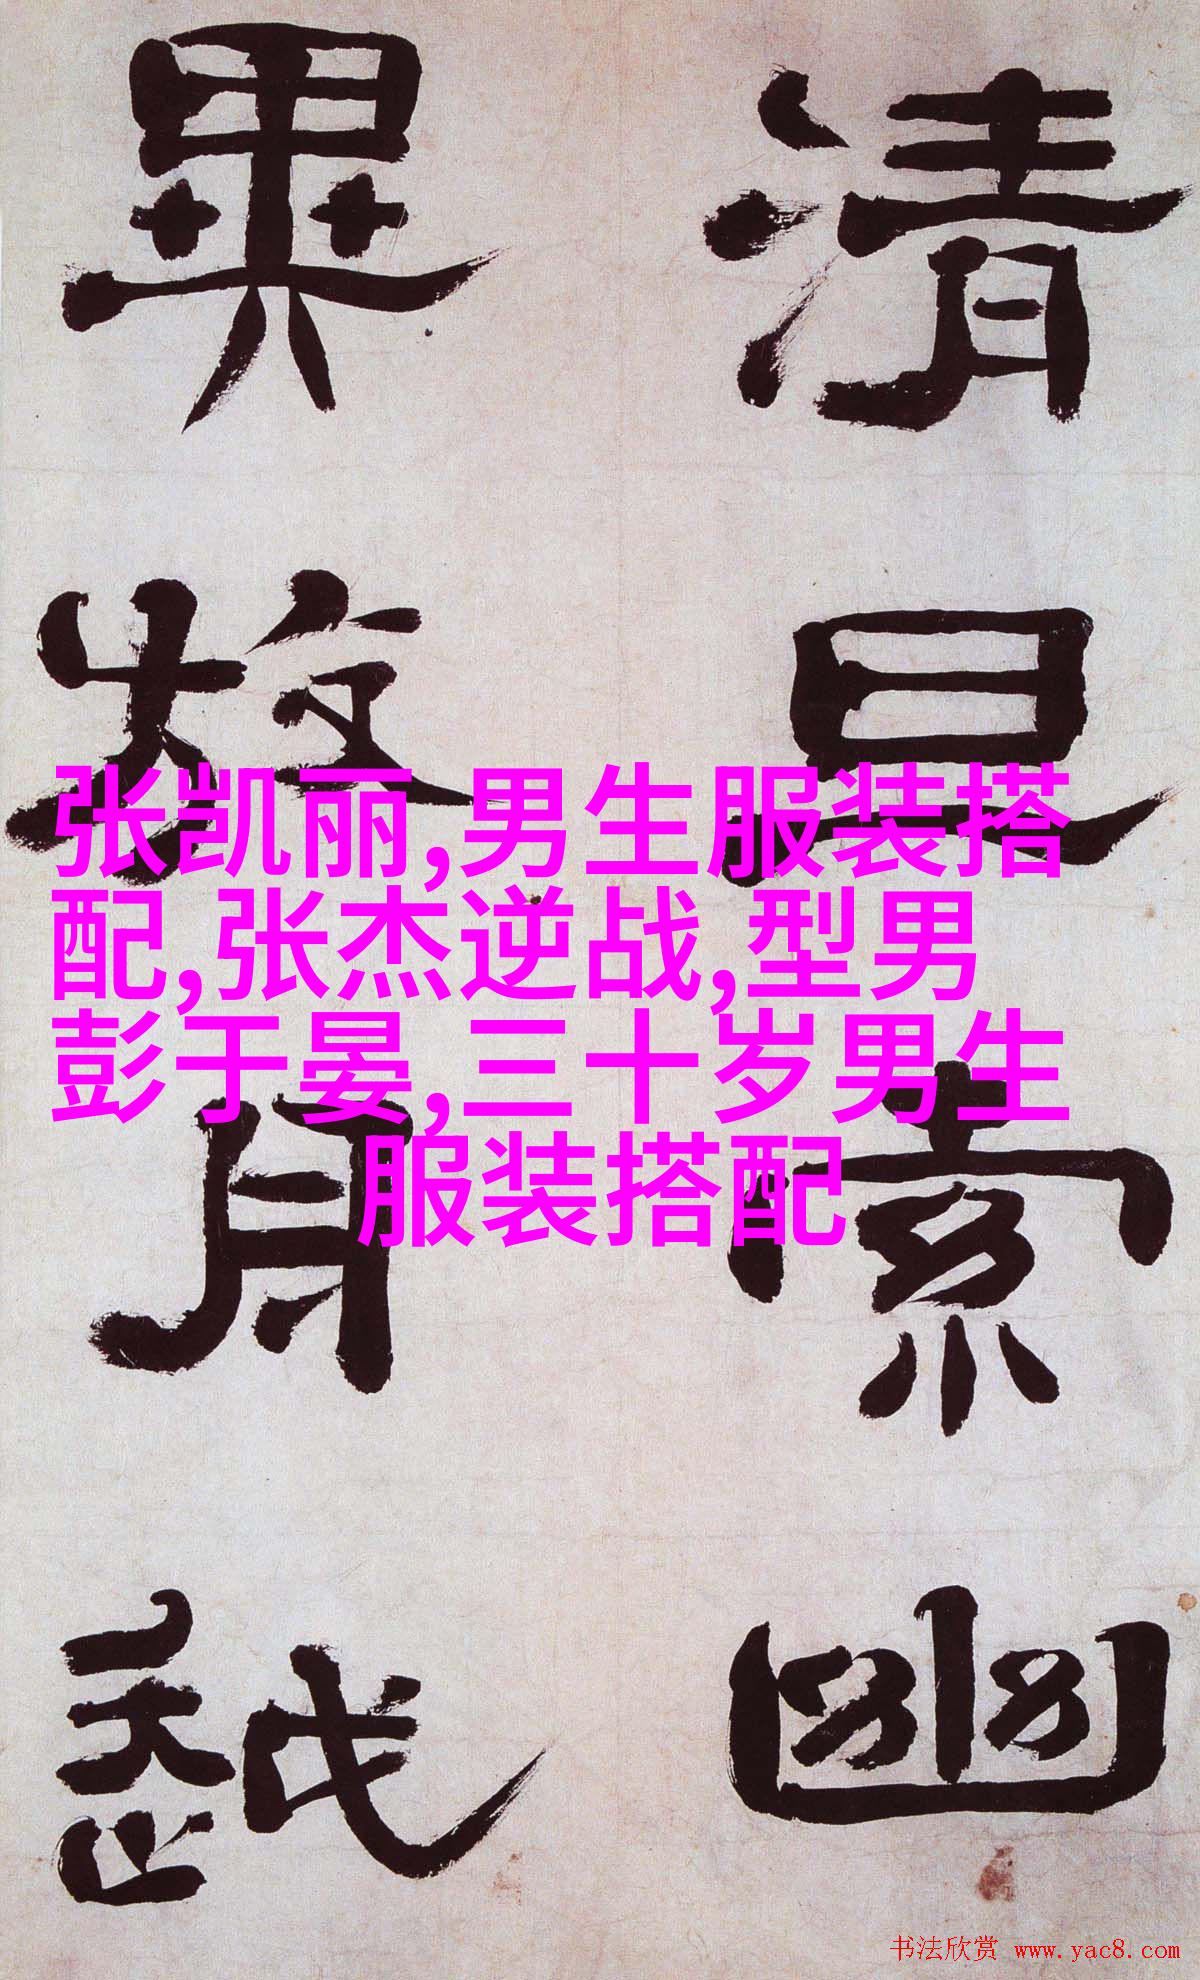 清旦索幽
異放舟越
张凯丽,男生服装搭
配,张杰逆战,型男
彭于晏,三十岁男生
服装搭配
书法欣赏 www.yac8.com